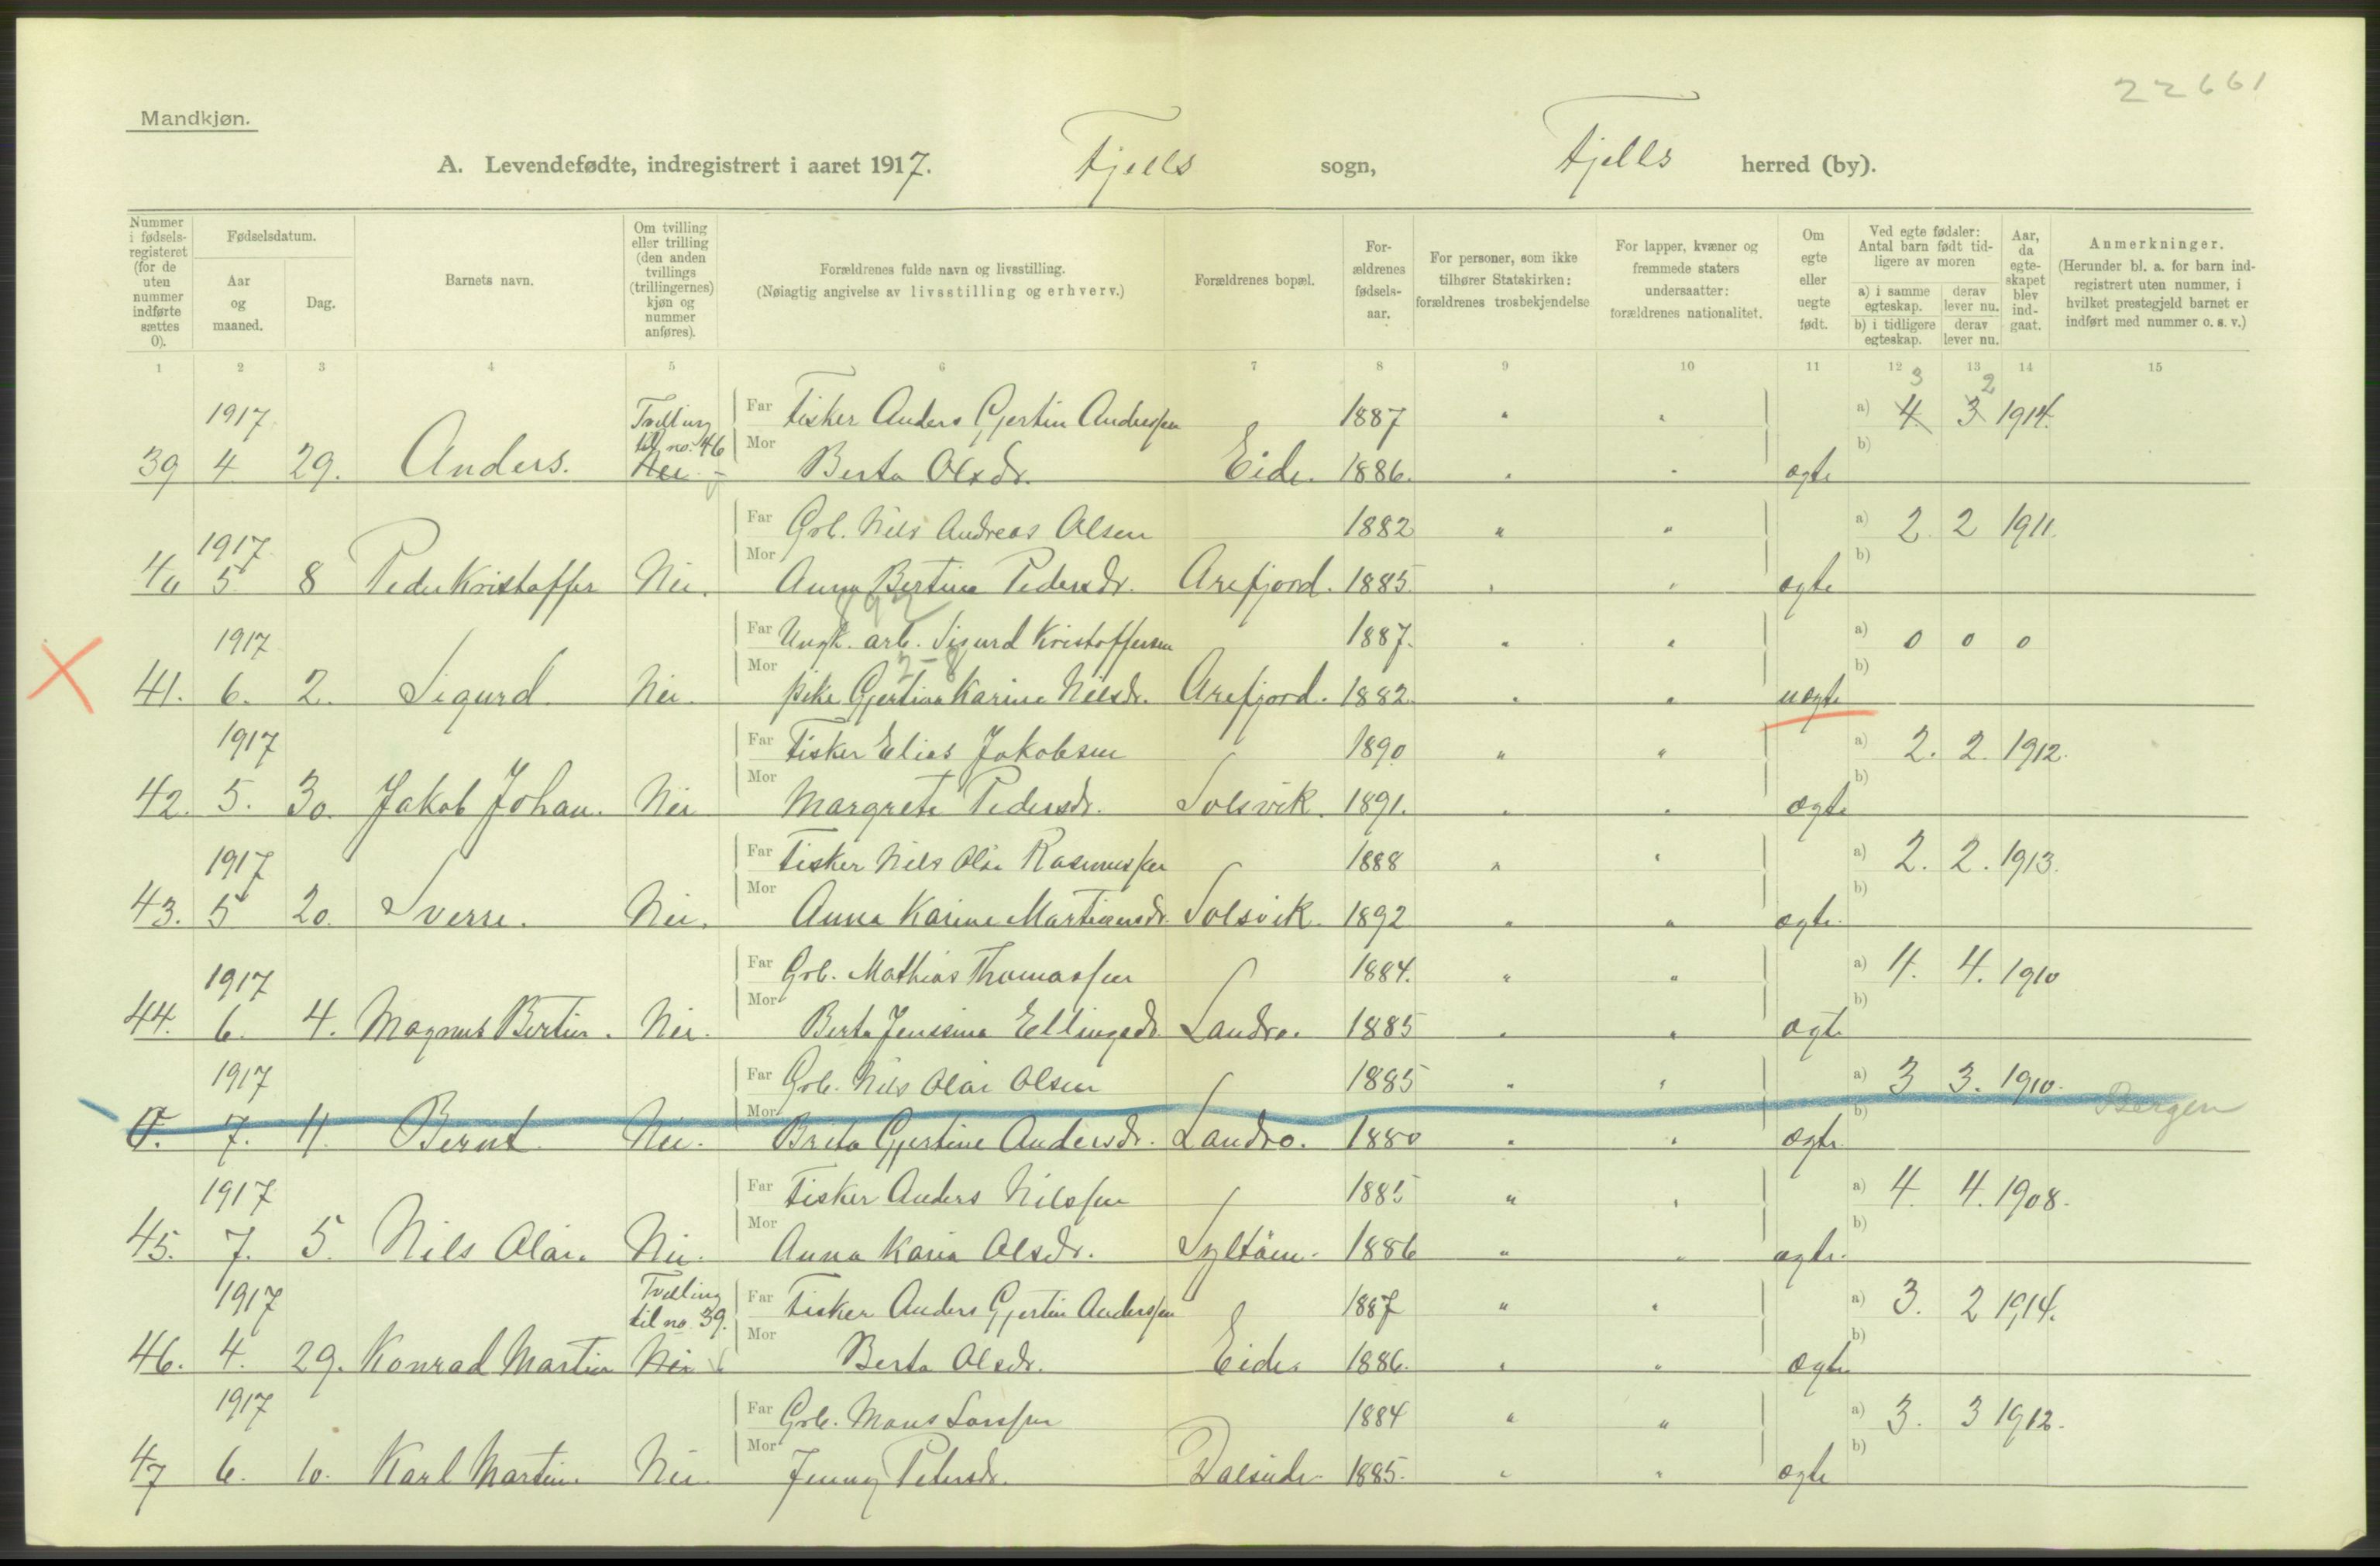 22661
Mandkjøn.
A. Levendefødte, indregistrert i aaret 1917. Fjells sogn, Fjells herred (by).
Nummer i fødselsregisteret (for de uten nummer indførte sættes 0).
Fødselsdatum.
Aar og maaned.
Dag.
Barnets navn.
Om tvilling eller trilling (den anden tvillings (trillingernes) kjøn og nummer anføres).
Forældrenes fulde navn og livsstilling.
(Nøiagtig angivelse av livsstilling og erhverv.)
Forældrenes bopæl.
Forældrenes fødselsaar.
For personer, som ikke tilhører Statskirken: forældrenes trosbekjendelse
For lapper, kvæner og fremmede staters undersaatter: forældrenes nationalitet.
Om egte eller uegte født.
Ved egte fødsler: Antal barn født tidligere av moren
a) i samme egteskap.
derav lever nu.
b) i tidligere egteskap.
derav lever nu.
Aar, da egteskapet blev indgaat.
Anmerkninger.
(Herunder bl. a. for barn indregistrert uten nummer, i hvilket prestegjeld barnet er indført med nummer o. s. v.)
1 2 3 4 5 6 7 8 9 10 11 12 13 14 15
3 2
1917 Tvilling Far Fisker Anders Gjertin Anderssen 1887 " " a) 4. 3 1914.
til no. 46
39 4 29. Anders. Nei. Mor Berta Olsdr. Eide. 1886. " " ægte b)
1917 Far Grb. Nils Andreas Olsen 1882 " " a) 2 2 1911.
40 5 8 Peder Kristoffer Nei. Mor Anna Bertine Pedersdr. Arefjord. 1885. " " ægte b)
1917 Far Ungk. arb. Sigurd Kristoffersen 1887. " " a) 0 0 0
41. 6. 2. Sigurd. Nei. Mor pike Gjertine Karine Nilsdr. Arefjord. 1882. " " uægte b)
1917 Far Fisker Elias Jakobsen 1890 " " a) 2. 2. 1912.
42. 5. 30. Jakob Johan. Nei Mor Margrete Pedersdr. Solsvik. 1891. " " ægte b)
1917 Far Fisker Nils Olai Rasmussen 1888 " " a) 2. 2. 1913.
43. 5 20. Sverre. Nei. Mor Anna Karine Martinusdr. Solsvik. 1892 " " ægte. b)
1917 Far Grb. Mathias Thomassen 1884. " " a) 4. 4. 1910
44. 6. 4. Magnus Bertin. Nei. Mor Berta Jenssine Ellingsdr. Landro. 1885 " " ægte b)
1917 Far Grb. Nils Olai Olsen 1885 " " a) 3 3. 1910. Bergen
0. 7. 4. Bernt. Nei. Mor Brita Gjertine Andersdr. Landro. 1880 " " ægte. b)
1917 Far Fisker Anders Nilssen 1885 " " a) 4. 4. 1908.
45. 7. 5. Nils Olai. Nei. Mor Anna Karia Olsdr. 1886 " " ægte. b)
1917 Tvilling Far Fisker Anders Gjertin Anderssen 1887 " " a) 3. 2 1914.
til no 39.
46. 4. 29. Konrad Martin Nei Mor Berta Olsdr. Eide. 1886. " " ægte b)
1917 Far Grb. Mons Larssen 1884 " " a) 3. 3 1912.
47 6. 10. Karl Martin. Nei. Mor Jenny Petersdr. 1885. " " ægte b)